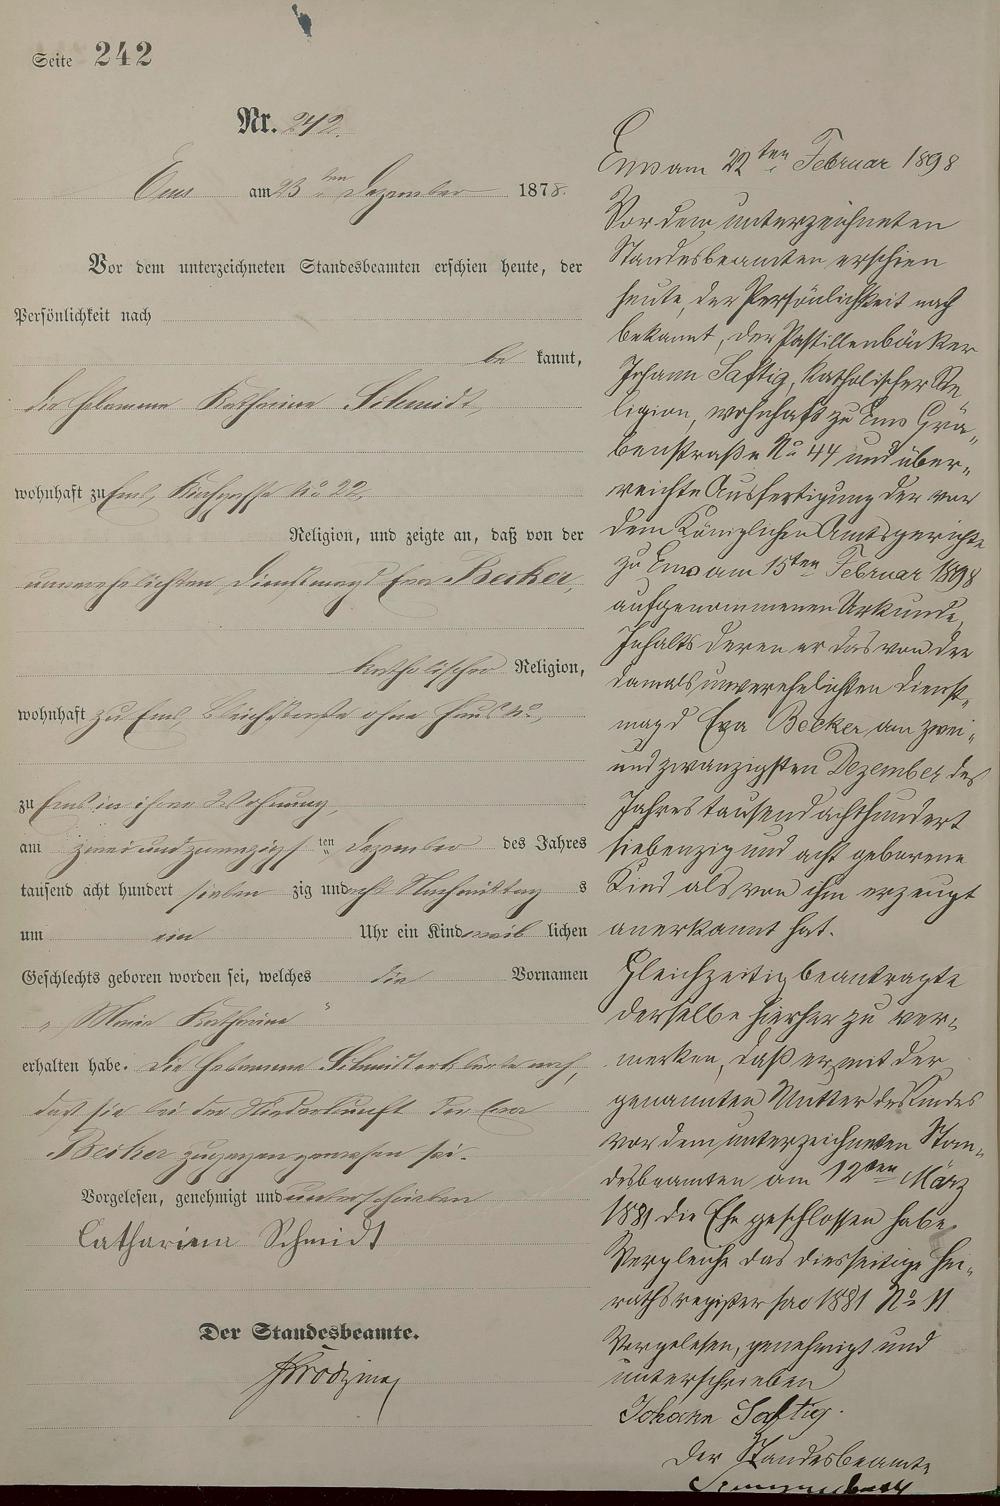 Seite 242
Nr. 242.
Ems am 23ten Dezember 1878.
Vor dem unterzeichneten Standesbeamten erschien heute, der
Persönlichkeit nach
be kannt,
die Hebamme Katharina Schmidt,
wohnhaft zu Ems, Kirchgasse No 22,
Religion, und zeigte an, daß von der
unverehelichten Dienstmagd Eva Becker,
katholischer Religion,
wohnhaft zu Ems, Bleichstraße ohne Haus No,
zu Ems in ihrer Wohnung,
am zwei und zwanzigsten Dezember des Jahres
tausend acht hundert sieben zig und acht Nachmittag s
um ein Uhr ein Kind weib lichen
Geschlechts geboren worden sei, welches die Vornamen
„Maria Katharina“
erhalten habe. Die Hebamme Schmidt erklärte noch,
daß sie bei der Niederkunft der Eva
Becker zugegen gewesen sei.
Vorgelesen, genehmigt und unterschrieben
Catharina Schmidt
Der Standesbeamte.
Ems am 22ten Februar 1898
Vor dem unterzeichneten
Standesbeamten erschien
heute, der Persönlichkeit nach
bekannt, der Pastillenbäcker
Johann Saftig, katholischer Re„
ligion, wohnhaft zu Ems Grä„
benstraße No 44 und über„
reichte Ausfertigung der vor
dem Königlichen Amtsgerichte
zu Ems am 15ten Februar 1898
aufgenommenen Urkunde,
Inhalts deren er das von der
damals unverehelichten Dienst„
magd Eva Becker am zwei„
und zwanzigsten Dezember des
Jahres tausend achthundert
siebenzig und acht geborene
Kind als von ihm erzeugt
anerkannt hat.
Gleichzeitig beantragte
derselbe hierher zu ver„
merken, daß er mit der
genannten Mutter des Kindes
vor dem unterzeichneten Stan„
desbeamten am 12ten März
1881 die Ehe geschlossen habe.
Vergleiche das diesseitige Hei„
rathsregister pro 1881 No 11
Vorgelesen, genehmigt und
unterschrieben
Johann Saftig.
Der Standesbeamte